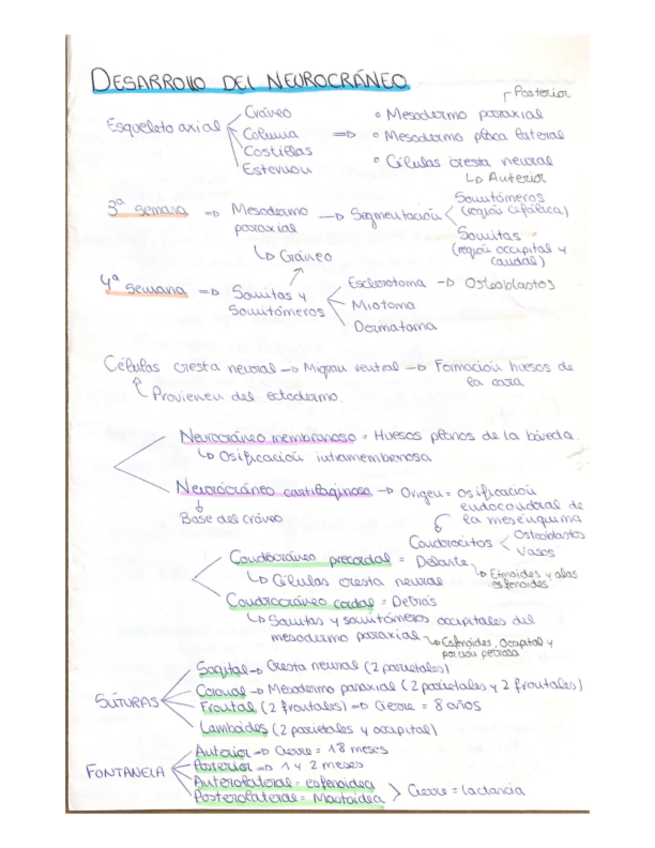 DESARROLLO DEL NEUROCRÁNEO
Posterior
Esqueleto axial
Cráneo
Columna
Costillas
Esternón
⇒
° Mesodermo paraxial
° Mesodermo placa lateral
° Células cresta neural
↳ Anterior
3ª semana ⇒ Mesodermo paraxial → Segmentación
Somitómeros
(región cefálica)
Somitas
(región occipital y
caudal)
↳ Cráneo
4ª semana ⇒ Somitas y
Somitómeros
Esclerotoma → Osteoblastos
Miotoma
Dermatoma
Células cresta neural → Migran ventral → Formación huesos de
la cara
Provienen del ectodermo.
Neurocráneo membranoso = Huesos planos de la bóveda.
↳ Osificación intramembranosa
Neurocráneo cartilaginoso → Origen = osificación
endocondral de
la mesénquima
Base del cráneo
Condrocitos
Osteoblastos
Vasos
Condrocráneo precordal = Delante
↳ Células cresta neural
↳ Etmoides y alas
esfenoides
Condrocráneo cordal = Detrás
↳ Somitas y somitómeros occipitales del
mesodermo paraxial
↳ Esfenoides, Occipital y
porción petrosa
SUTURAS
Sagital → Cresta neural (2 parietales)
Coronal → Mesodermo paraxial (2 parietales y 2 frontales)
Frontal (2 frontales) → Cierre = 8 años
Lamboides (2 parietales y occipital)
FONTANELA
Anterior → Cierre = 18 meses
Posterior → 1 y 2 meses
Anterolateral = esfenoidea
Posterolateral = Mastoidea
Cierre = lactancia